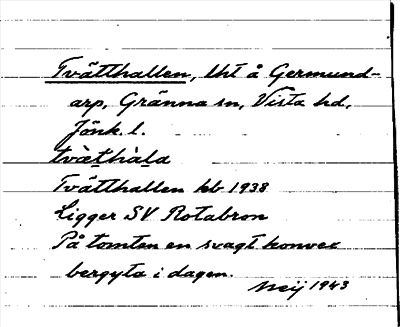 Tvätthallen, lht å Germund-
arp, Gränna sn, Vista hd,
Jönk. l.
tvæ̀thàla
Tvätthallen kb 1938
Ligger SV Rotabron
På tomten en svagt konvex
bergyta i dagen.
Meij 1943